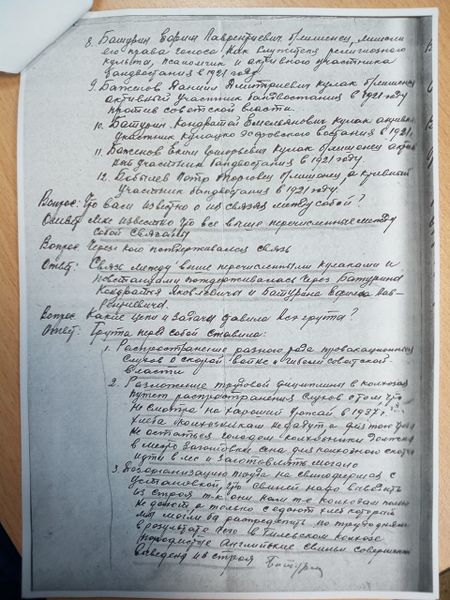 8. Батурин Ефрим Лаврентиевич б/лишенец, лишали
его права голоса как служителя религиозного
культа, псаломчик и активного участника
бандвостания в 1921 году.
9. Баженов Даниил Дмитриевич кулак б/лишенец
активный участник бандвостания в 1921 году
против советской власти.
10. Батурин Кондратий Емельянович кулак активн.
участник кулацко эсеровского востания в 1921 г.
11. Баженов Еким Григорьевич кулак б/лишенец актив
ный участник бандвостания в 1921 году
12. Бабычев Петр б/лишенец активный
участник бандвостания в 1921 году
Вопрос: Что вам известно о их связях между собой?
Ответ: Мне известно что все выше перечисленные между
собой связаны
Вопрос Через кого потверживалась связь
Ответ: Связь между выше перечисленными кулаками и
повстанцами потдерживалась через Батурина
Кондратия Яковлевича и Батурина Лав-
рентиевича.
Вопрос Какие цели и задачи давила вся группа?
Ответ: Група перед собой ставила:
1. Распространение разного рода провакационных
слухов о скорой войне и гибели советской
власти
2. Разложение трудовой дисциплины в колхозах
путем распространения слухов о том что
не смотря на хароший урожай в 1937 г.
хлеба колхозникам не дадут а для того чтоб
не остаться голодом колхозники должны
в место заготовки сена для колхозного скота
итти в лес и заготовлять
3. на свинофермах с
установкой, что свиней надо выводить
из строя т.к. они нам т.к. колхозам пользы
не дают а только съедают хлеб который
мы могли бы распределить по трудодням
в результате чего в колхозе
породистые Английские свиньи совершенно
выведены из строя Батурин